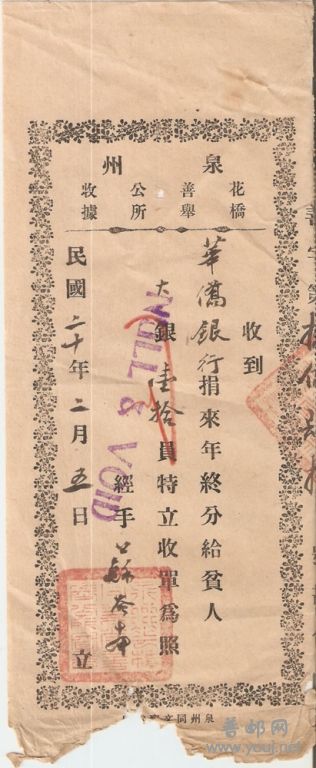 泉州
花橋
善舉
公所
收據
收到
華僑銀行捐來年終分給貧人
大銀壹拾員特立收單為照
經手
民國二十年二月五日
立
NULL & VOID
善字第
泉州同文
普邮网
www.youj.net